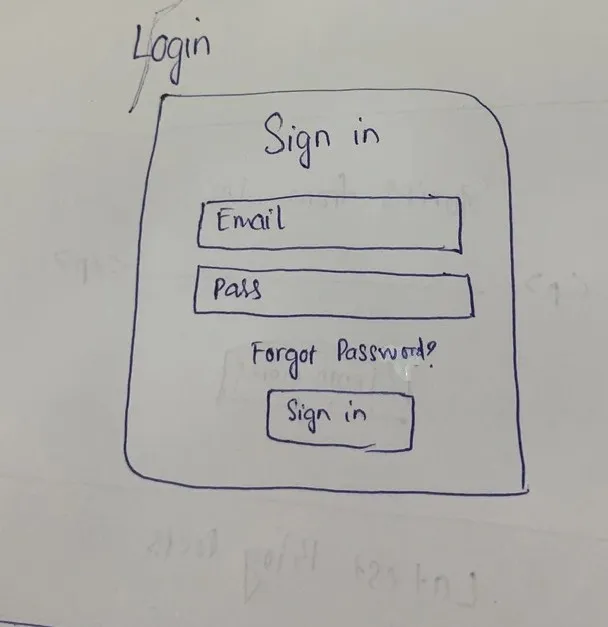 Login
Sign in
Email
Pass
Forgot Password?
Sign in